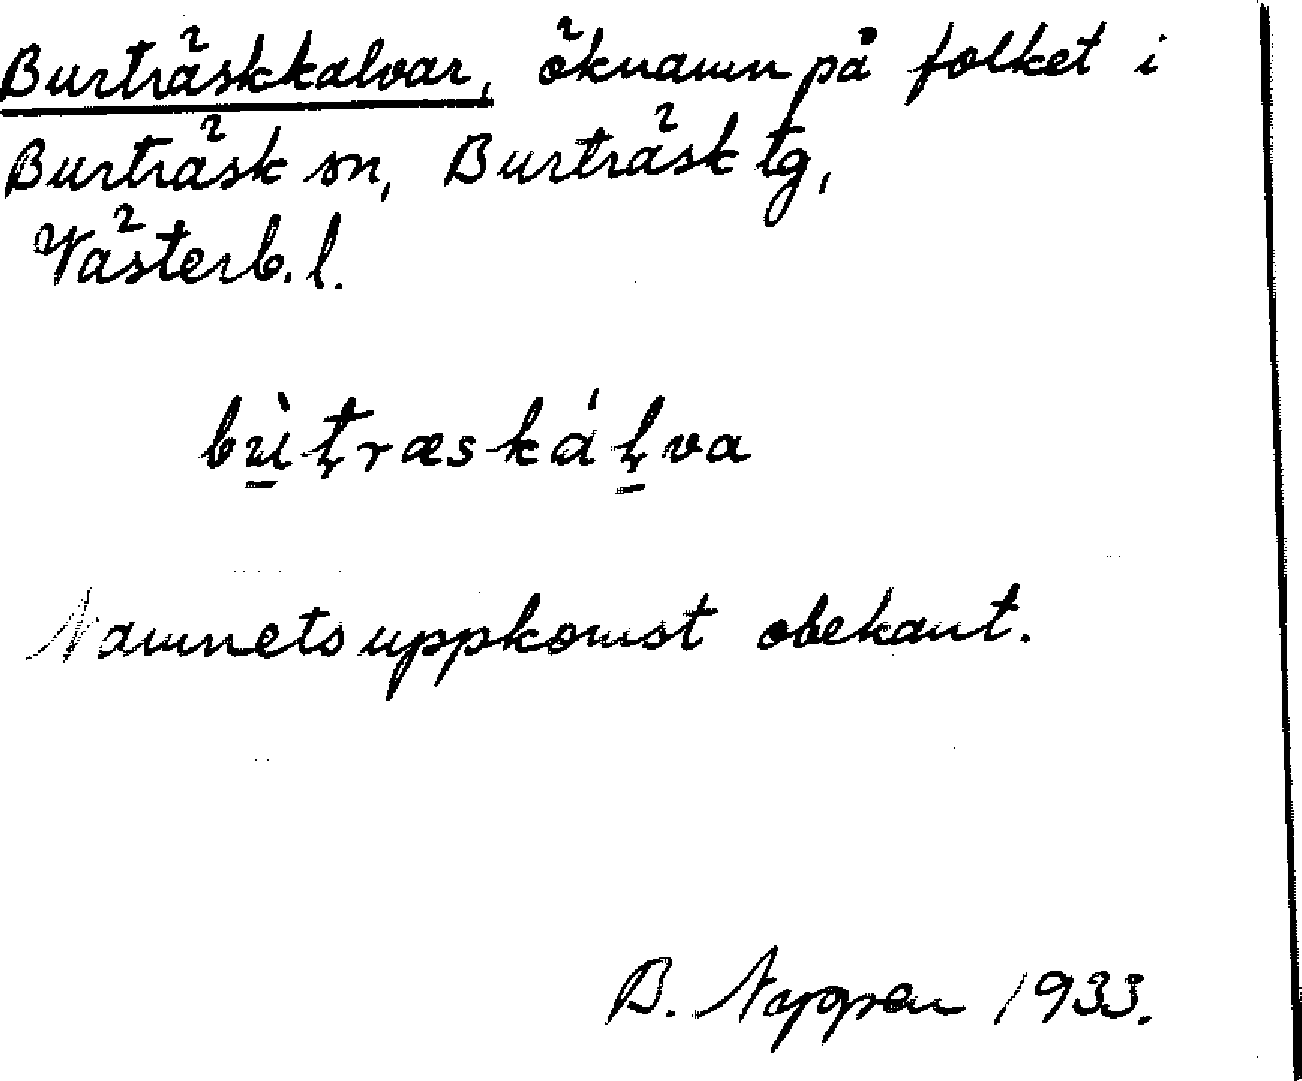 Burträskkalvar, öknamn på folket i
Burträsk sn, Burträsk tg,
Västerb. l.
bù̱ţræskáļ̱va
Namnets uppkomst obekant.
B. 1933.